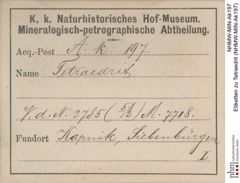 K. k. Naturhistorisches Hof-Museum.
Mineralogisch-petrographische Abtheilung.
Acq.-Post A. k. 197
Name Tetraedrit
V. d. N. 2785 (5/2) M. 7718.
Fundort Kapnik, Siebenbürgen
I.
NHMW-MIN-Ak197
Etiketten zu Tetraedrit (NHMW-MIN-Ak197)
nhm